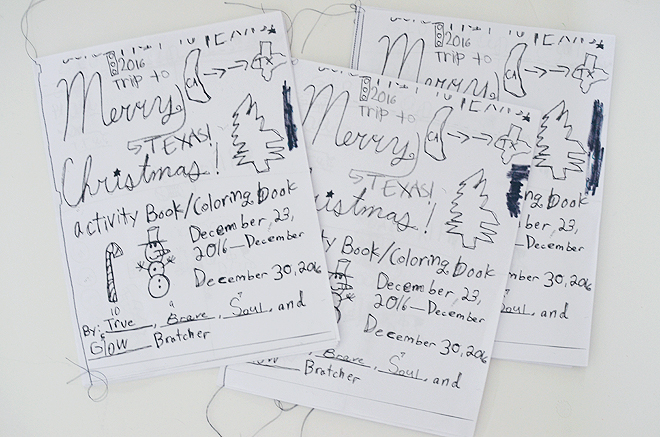 2016
Trip to
TEXAS
CA TX
Merry
TEXAS!
Christmas!
activity Book/Coloring Book
December, 23,
2016—December
December 30, 2016
10 9 7
By: True, Brave, Soul, and
Glow Bratcher
2016
Trip to
TEXAS
CA TX
Merry
TEXAS!
istmas!
ty Book/Coloring Book
December, 23,
2016—December
December 30, 2016
Brave, Soul, and
Glow Bratcher
2016
Trip to
TEXAS
CA TX
Merry
ng Book
23,
December
30, 2016
Soul, and